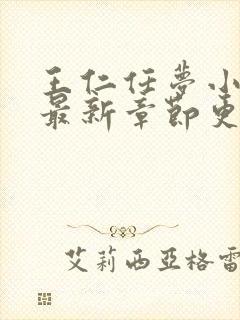 王仁任夢小
最新章節更
艾莉西亞格雷